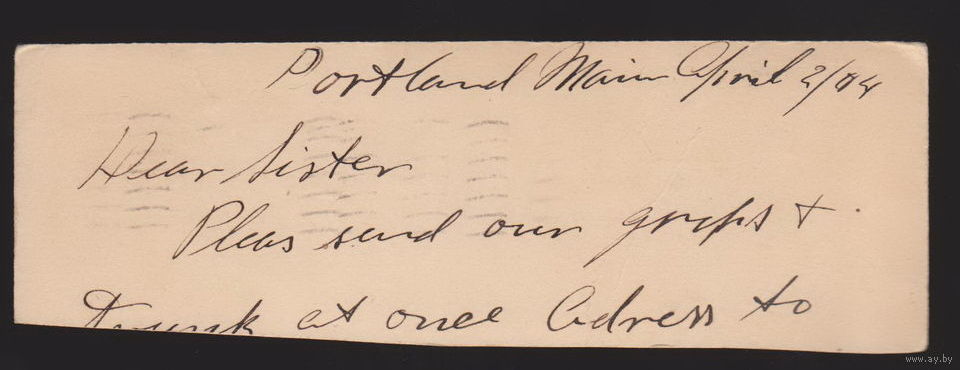 Portland Main April 2/04
Dear Sister
Pleas send our grips +
Trunk at once Adress to
www.ay.by